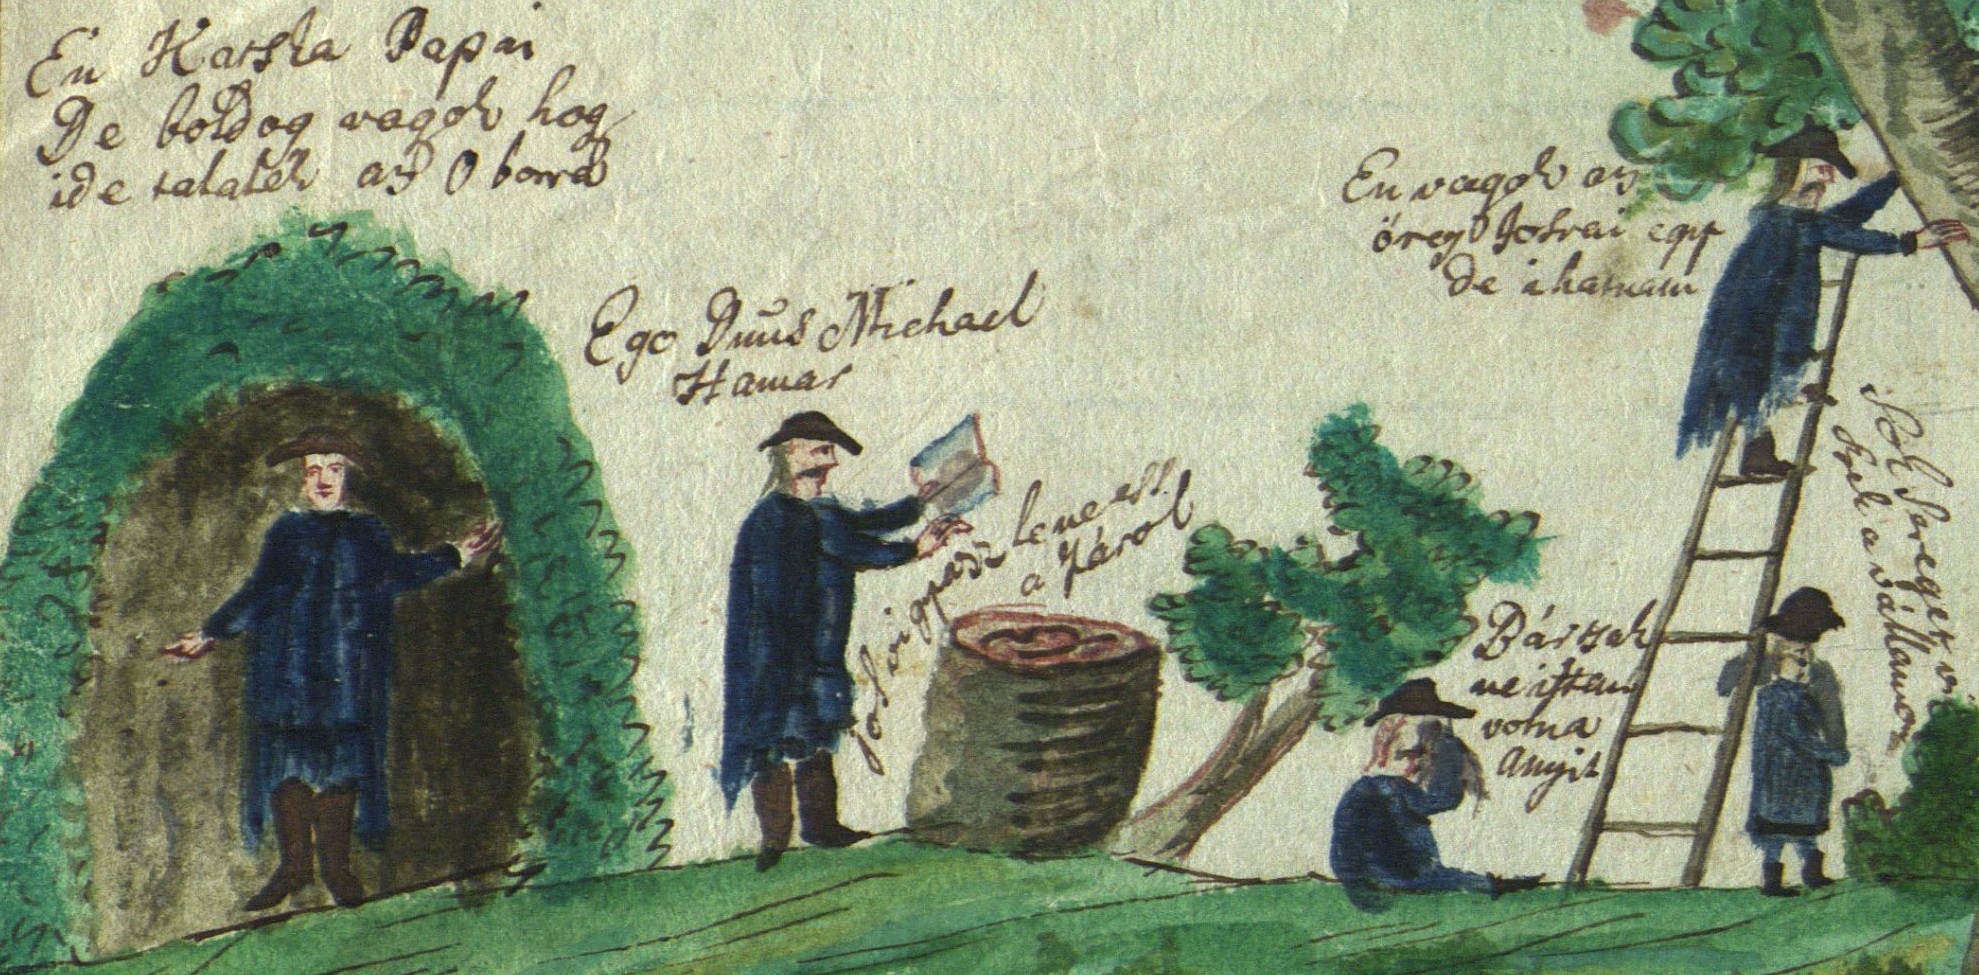 En Karska Papai
De boldog vagok hog
ide talalek az O borra
Ego Dnus Michael
Hamar
jol vigyazz le ne est
a Zárol
En vagok az
öreg Jokai egy
De ihatnam
Bártsek
ne ittam
volna
Anyit
Sok sereget vi
szek a vállamon